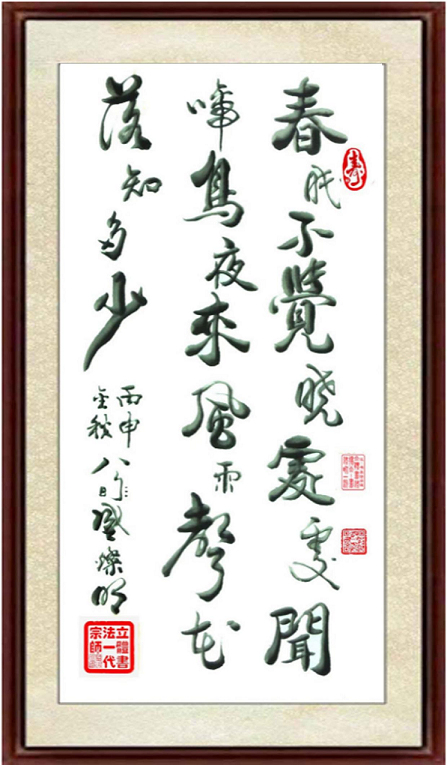 春眠不覺晓處處聞
壽
啼鳥夜來風雨聲花
落知多少
丙申
金秋
八旬盛燦明
立體書
法一代
宗師